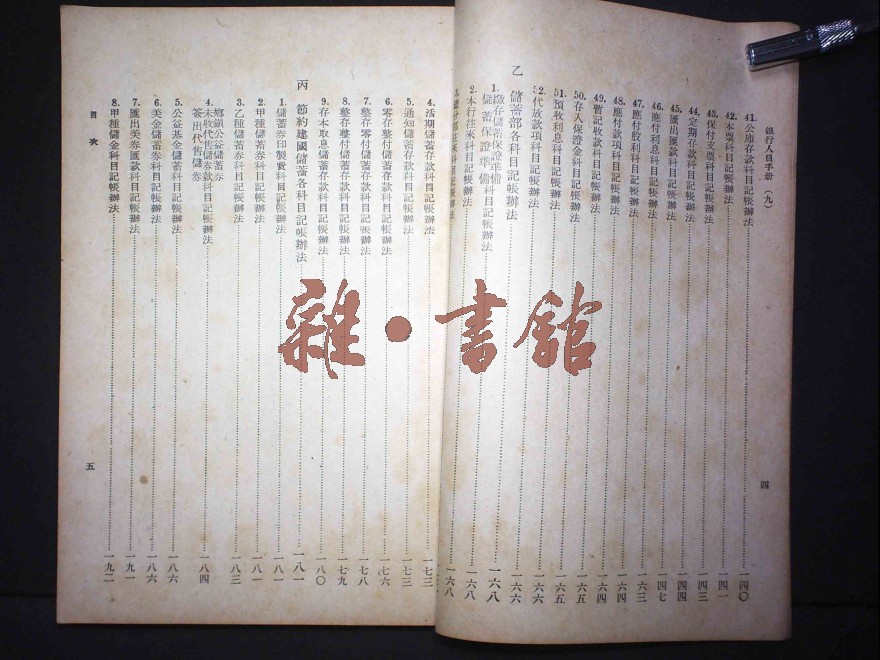 銀行人員手册（九）
四
41. 公庫存款科目記帳辦法 一四〇
42. 本票科目記帳辦法 一四一
43. 保付支票科目記帳辦法 一四三
44. 定期存款科目記帳辦法 一四四
45. 匯出匯款科目記帳辦法 一四四
46. 應付利息科目記帳辦法 一四七
47. 應付股利科目記帳辦法 一六三
48. 應付款項科目記帳辦法 一六四
49. 暫記收款科目記帳辦法 一六四
50. 存入保證金科目記帳辦法 一六五
51. 預收利息科目記帳辦法 一六五
52. 代放款項科目記帳辦法 一六六
乙 儲蓄部各科目記帳辦法 一六六
1. 繳存儲蓄保證準備科目記帳辦法 一六八
儲蓄保證準備
2. 本行往來科目記帳辦法 一六八
3. 總分部往來科目記帳辦法 一六八
4. 活期儲蓄存款科目記帳辦法 一七三
5. 通知儲蓄存款科目記帳辦法 一七三
6. 零存整付儲蓄存款科目記帳辦法 一七六
7. 整存零付儲蓄存款科目記帳辦法 一七八
8. 整存整付儲蓄存款科目記帳辦法 一七九
9. 存本取息儲蓄存款科目記帳辦法 一八〇
丙 節約建國儲蓄各科目記帳辦法 一八一
1. 儲蓄券印製費科目記帳辦法 一八一
2. 甲種儲蓄券科目記帳辦法 一八一
3. 乙種儲蓄券科目記帳辦法 一八三
鄉鎮公益儲蓄券
4. 未收代售儲蓄券款科目記帳辦法 一八四
簽出代售儲券
5. 公益基金儲蓄存款科目記帳辦法 一八六
6. 美金儲蓄券科目記帳辦法 一八六
7. 匯出美券匯款科目記帳辦法 一九一
8. 甲種儲金科目記帳辦法 一九二
目次
五
雜·書館